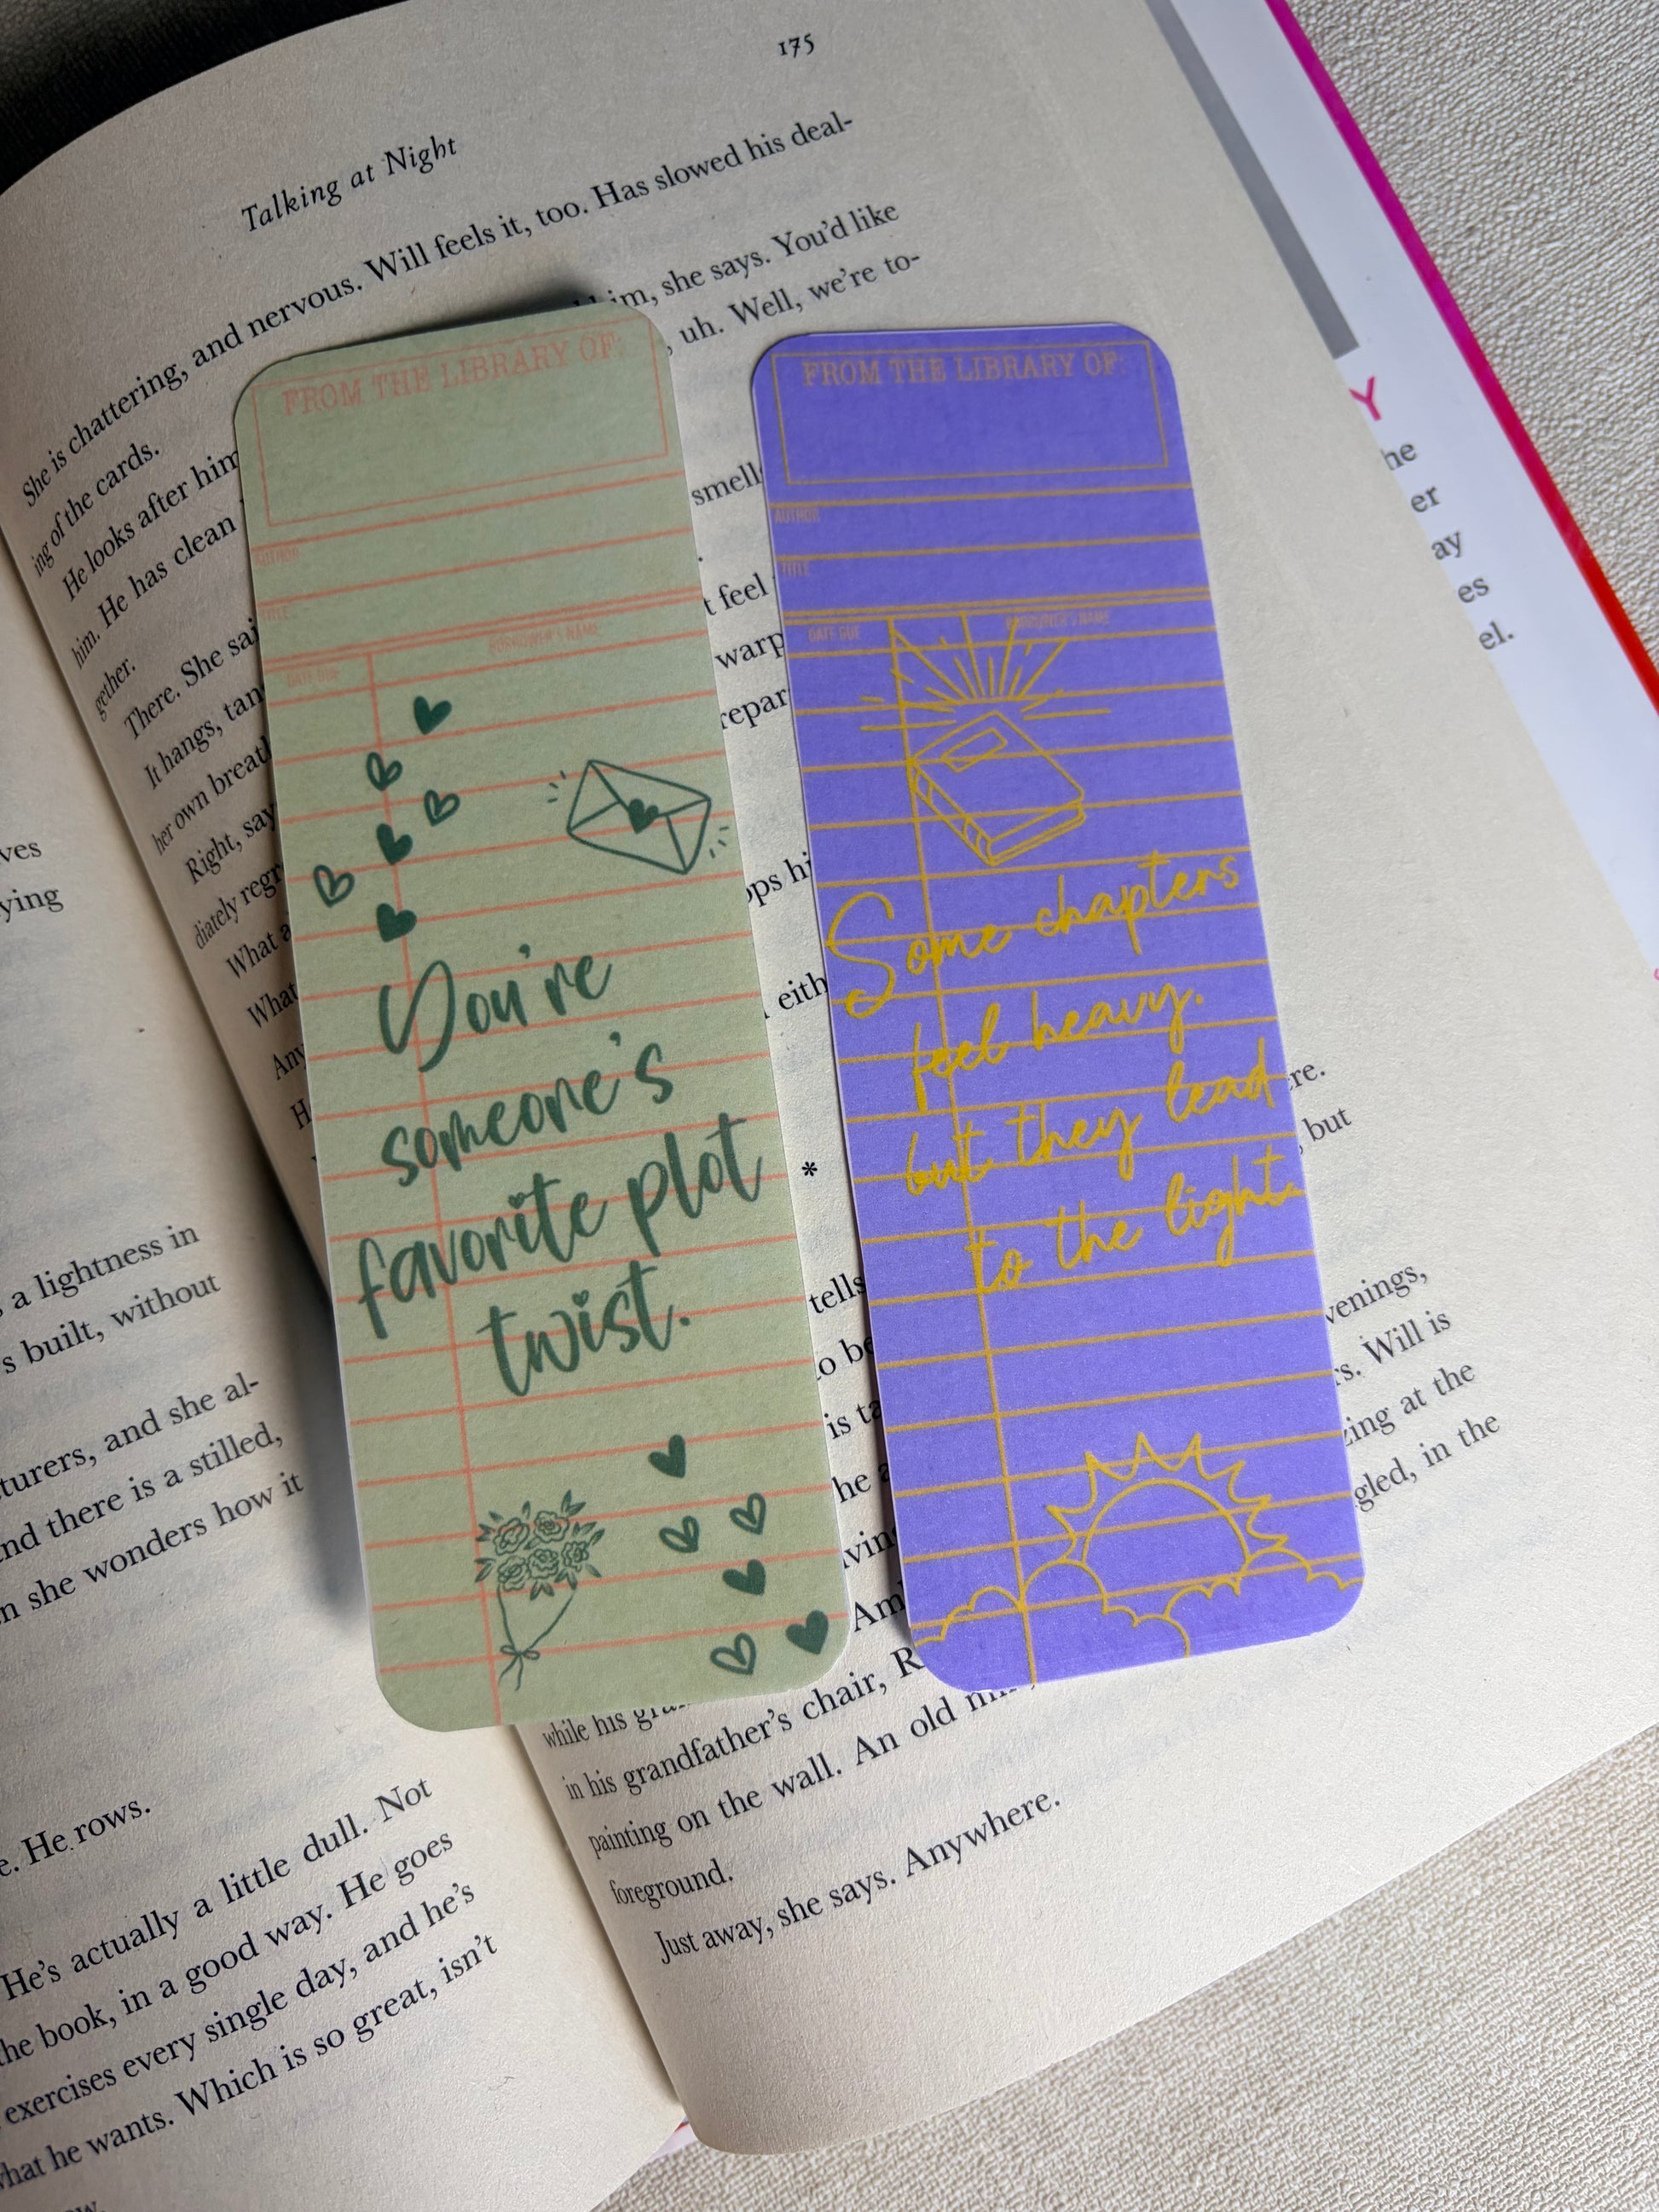 175
Talking at Night
She is chattering, and nervous. Will feels it, too. Has slowed his deal-
ing of the cards.
him, she says. You'd like
He looks after him
, uh. Well, we're to-
him. He has clean
gether.
smells
There. She sai
It hangs, tan
t feel
her own breath
warp
Right, say
repar
diately regr
What a
ops hi
What
Any
eith
H
re.
, but
*
tells
venings,
to be
rs. Will is
is ta
zing at the
he a
gled, in the
ving
Am
while his gra
in his grandfather's chair, R
painting on the wall. An old
foreground.
Just away, she says. Anywhere.
FROM THE LIBRARY OF:
AUTHOR
TITLE:
DATE DUE
BORROWER'S NAME
You're
someone's
favorite plot
twist.
FROM THE LIBRARY OF:
AUTHOR
TITLE
DATE DUE
BORROWER'S NAME
Some chapters
feel heavy.
but they lead
to the light.
ves
ying
, a lightness in
s built, without
turers, and she al-
nd there is a stilled,
n she wonders how it
e. He rows.
He's actually a little dull. Not
the book, in a good way. He goes
exercises every single day, and he's
what he wants. Which is so great, isn't
ow.
Y
he
er
ay
es
el.